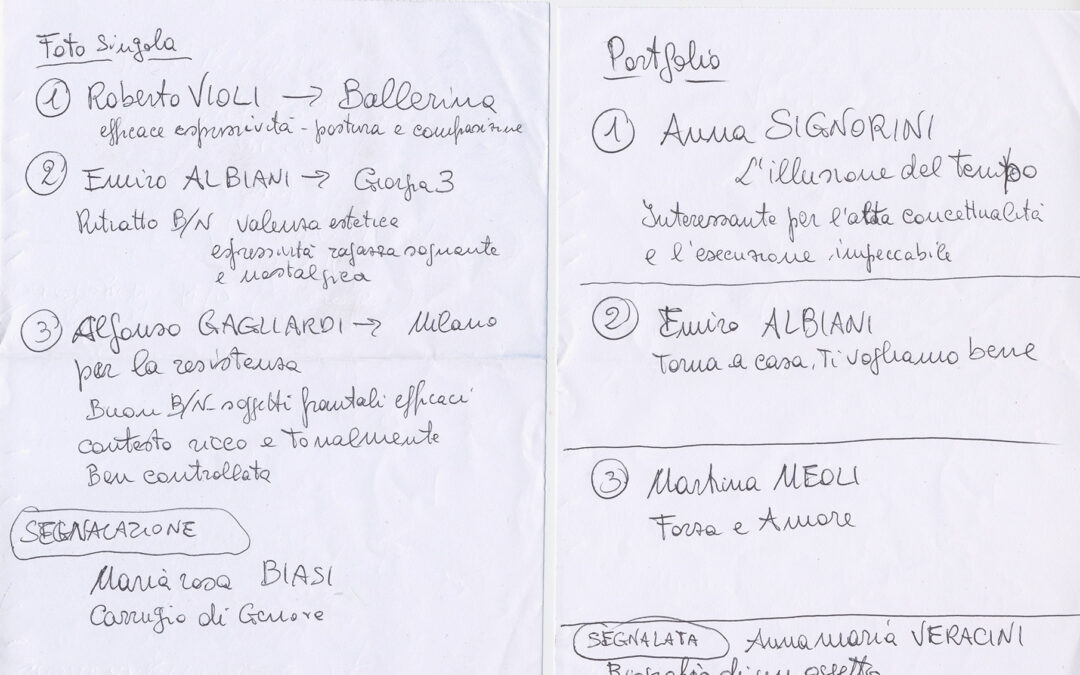 Foto Singola
1 Roberto VIOLI → Ballerina
efficace espressività - postura e composizione
2 Emiro ALBIANI → Giorgia 3
Ritratto B/N valenza estetica
espressività ragazza sognante
e nostalgica
3 Alfonso GAGLIARDI → Milano
per la resistenza
Buon B/N - soggetti frontali efficaci
contesto ricco e tonalmente
Ben controllata
SEGNALAZIONE
Maria rosa BIASI
Carrugio di Genova
Portfolio
1 Anna SIGNORINI
L'illusione del tempo
Interessante per l'alta concettualità
e l'esecuzione impeccabile
2 Emiro ALBIANI
Torna a casa, Ti vogliamo bene
3 Martina MEOLI
Forza e Amore
SEGNALATA Annamaria VERACINI
di un oggetto